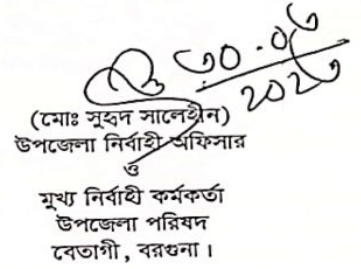 ২০২৩
(মোঃ সুহৃদ সালেহীন)
উপজেলা নির্বাহী অফিসার
ও
মুখ্য নির্বাহী কর্মকর্তা
উপজেলা পরিষদ
বেতাগী, বরগুনা।